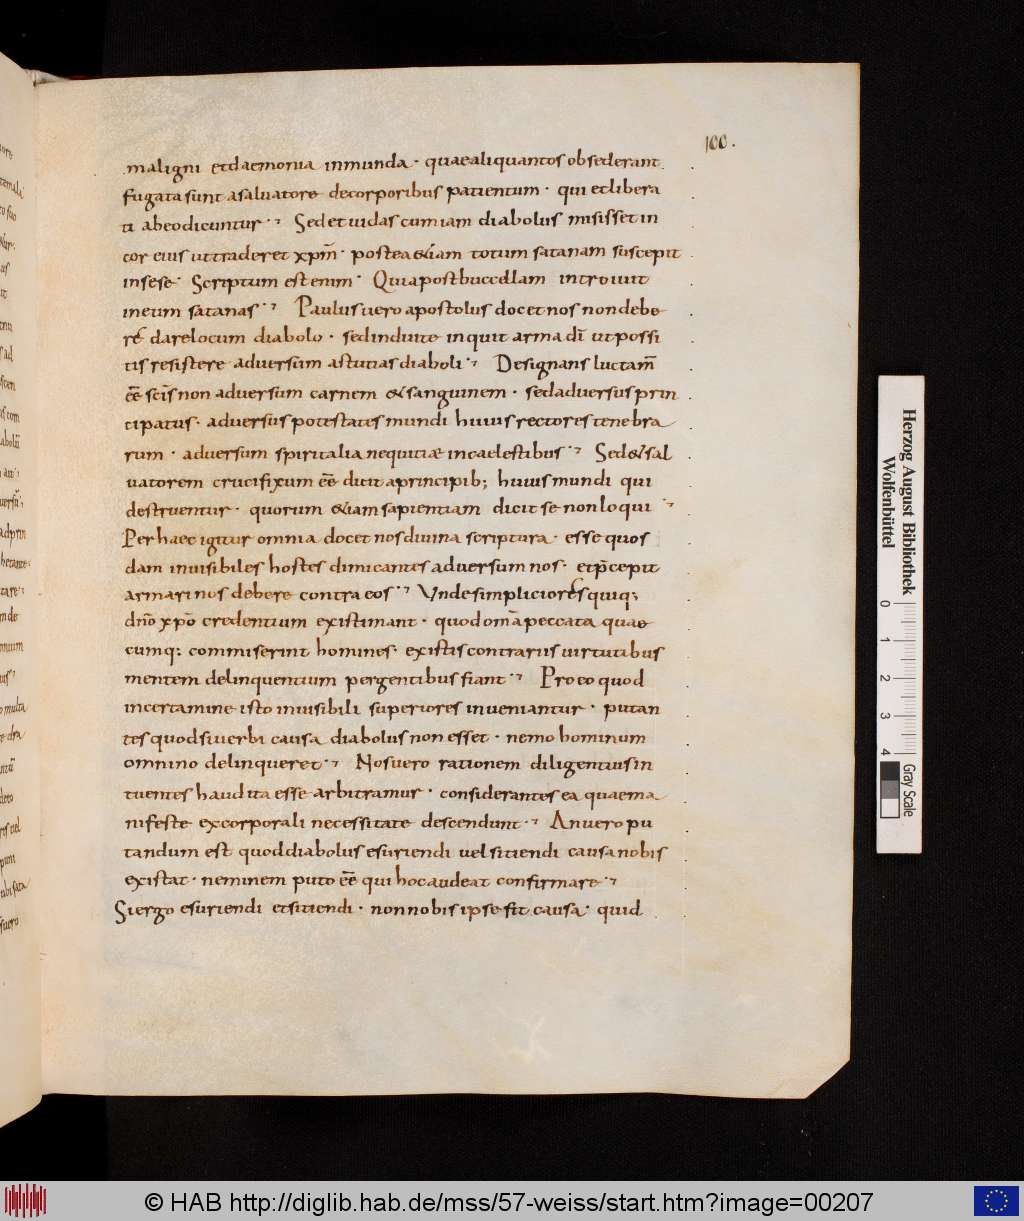 100.
maligni et daemonia inmunda · quae aliquantos obsederant
fugata sunt a saluatore de corporibus patientum · qui et libera
ti ab eo dicuntur · Sed et iudas cum iam diabolus misisset in
cor eius ut traderet xpm̄ · postea &iam totum satanam suscepit
in sese · Scriptum est enim · Quia post buccellam introiuit
in eum satanas · Paulus uero apostolus docet nos non debe
re dare locum diabolo · sed induite inquit arma dī ut possi
tis resistere aduersum astutias diaboli · Designans luctam̄
ēē scīs non aduersum carnem & sanguinem · sed aduersus prin
cipatus · aduersus potestates mundi huius rectores tenebra
rum · aduersum spiritalia nequitiae in caelestibus · Sed & sal
uatorem crucifixum ēē dicit a principib; huius mundi qui
destruentur · quorum &iam sapientiam dicit se non loqui
Per haec igitur omnia docet nos diuina scriptura · esse quos
dam inuisibiles hostes dimicantes aduersum nos · et p̄cepit
armari nos debere contra eos · Vnde simpliciores quiq;
dn̄o xpō credentium existimant · quod om̄a peccata quae
cumq; commiserint homines · ex istis contrariis uirtutibus
mentem delinquentium pergentibus fiant · Pro eo quod
in certamine isto inuisibili superiores inueniantur · putan
tes quod si uerbi causa diabolus non esset · nemo hominum
omnino delinqueret · Nos uero rationem diligentius in
tuentes haud ita esse arbitramur · considerantes ea quae ma
nifeste ex corporali necessitate descendunt · An uero pu
tandum est quod diabolus esuriendi uel sitiendi causa nobis
existat · neminem puto ēē qui hoc audeat confirmare ·
Si ergo esuriendi et sitiendi · non nobis ipse fit causa · quid
Herzog August Bibliothek
Wolfenbüttel
0 1 2 3 4
Gray Scale
© HAB http://diglib.hab.de/mss/57-weiss/start.htm?image=00207